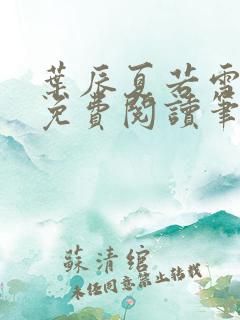 葉辰夏若雪
免費閱讀筆
蘇清綰
未经同意禁止转载